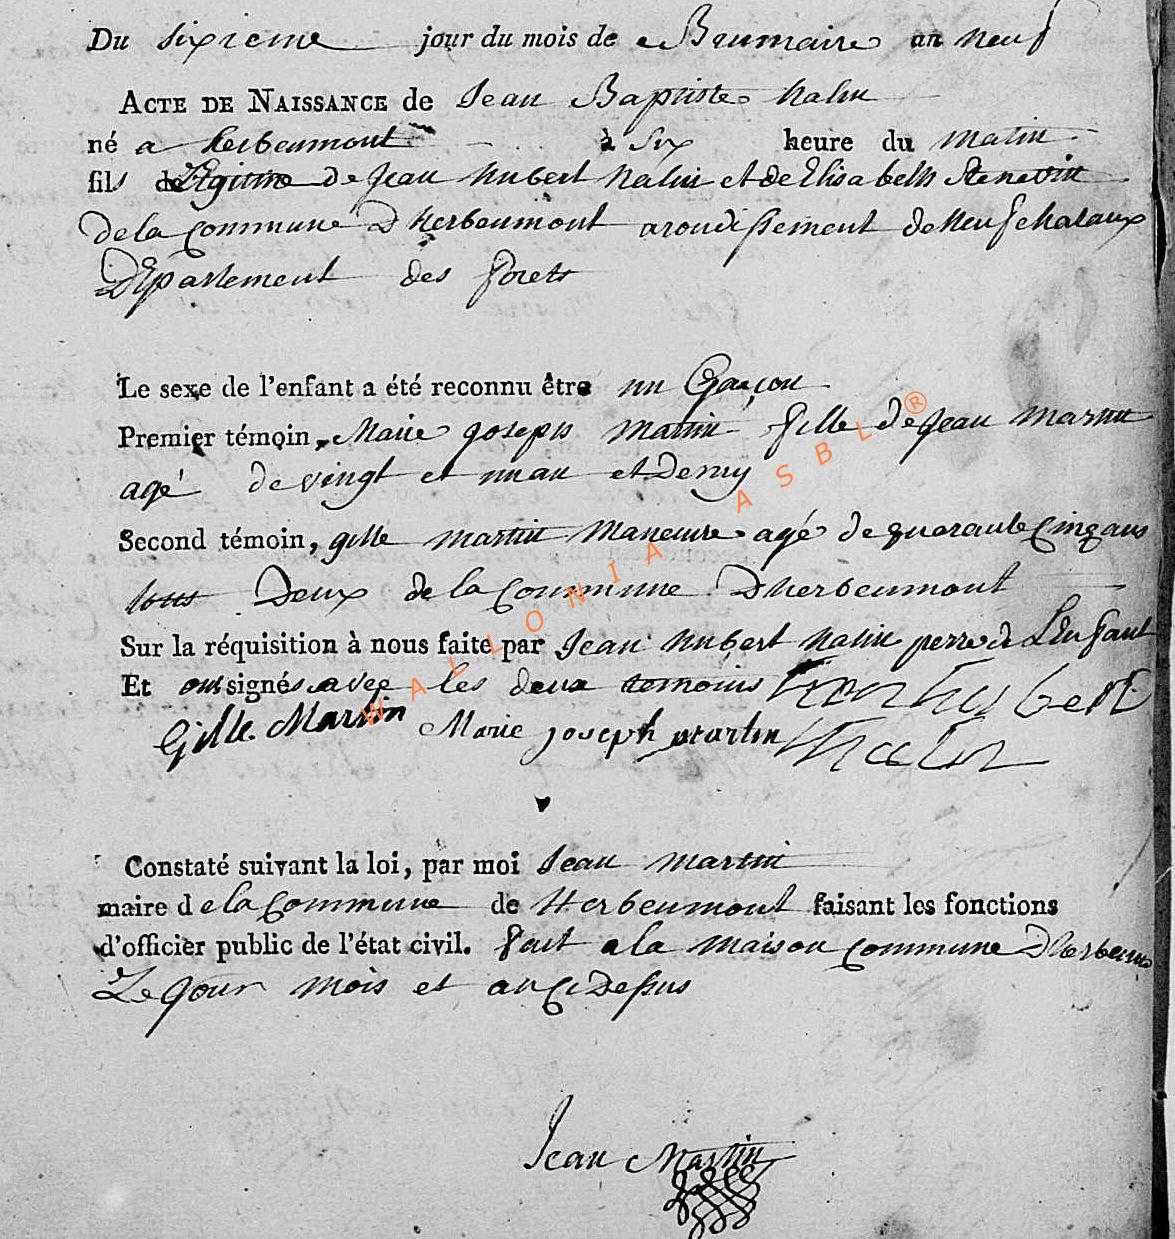 Du sixieme jour du mois de Brumaire an neuf
ACTE DE NAISSANCE de Jean Baptiste halin
né a herbeumont à six heure du matin
fils de légitime de jean hubert halin et de Elisabeth
de la Commune D herbeumont arondissement de Neufchataux
Département des forets
Le sexe de l'enfant a été reconnu être un Garçon
Premier témoin, Marie joseph martin fille de jean martin
agé de vingt et un an et Demy
Second témoin, gille martin Maneuvre agé de quarante Cinq ans
tous Deux de la Commune Dherbeumont
Sur la réquisition à nous faite par Jean hubert halin perre de L'Enfant
Et ont signés avec les deux temoins Jean hubert
Gille Martin Marie joseph martin halin
Constaté suivant la loi, par moi Jean martin
maire de la Commune de Herbeumont faisant les fonctions
d'officier public de l'état civil. fait a la maison commune Dherbeumo
Le jour mois et an Ci Dessus
Jean Martin
WALLONIA ASBL ®